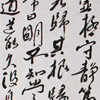 極守靜篤
復歸其根歸
常曰明不知
道乃久沒身